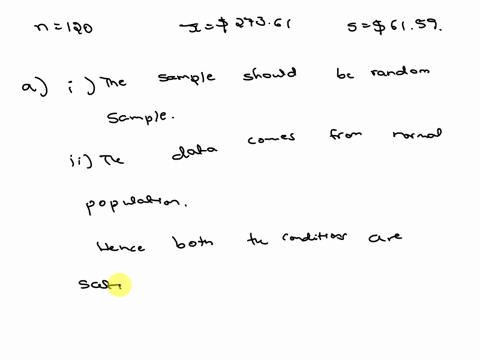 n=120 x̄=$273.61 s=$61.59.
a) i) The sample should be random
sample.
ii) The data comes from normal
population.
Hence both the conditions are